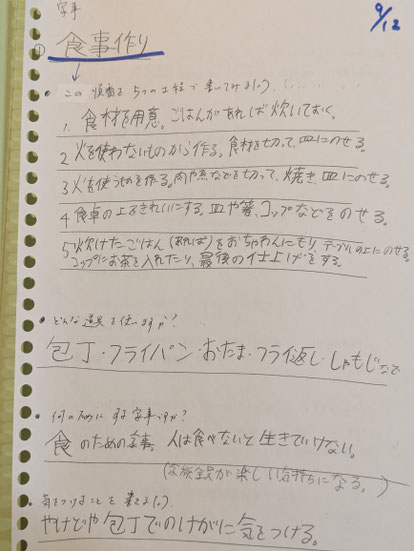 家事
9/12
① 食事作り
・この順番を5つの工程で書いてみよう。(.......
1. 食材を用意。ごはんがあれば炊いておく。
2 火を使わないものから作る。食材を切って、皿にのせる。
3 火を使うものを作る。肉や魚などを切って、焼き、皿にのせる。
4 食卓の上をきれいにする。皿や箸、コップなどをのせる。
5 炊けたごはん(あれば)をおちゃわんにもり、テーブルの上にのせる。
コップにお茶を入れたり、最後の仕上げをする。
・どんな道具を使いますか?
包丁・フライパン・おたま・フライ返し・しゃもじなど
・何のためにする家事ですか?
食のための家事。人は食べないと生きていけない。
(家族全員が楽しい気持ちになる。)
・気をつけることを書こう。
やけどや包丁でのけがに気をつける。